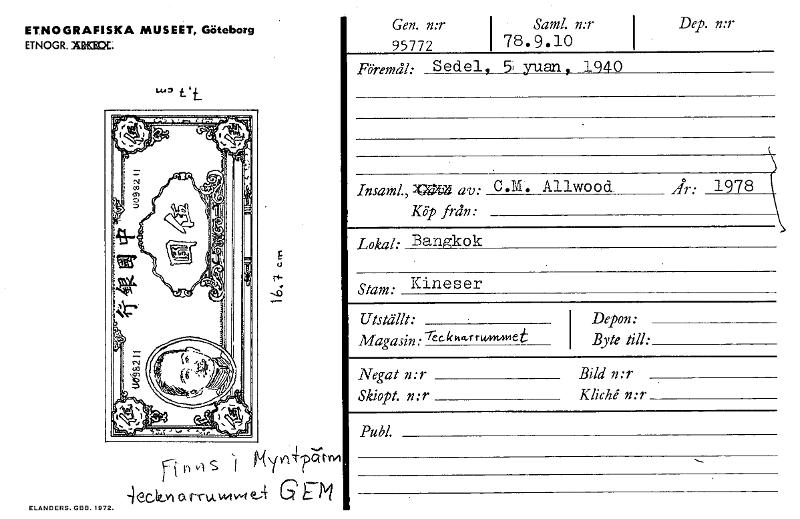 ETNOGRAFISKA MUSEET, Göteborg
ETNOGR.
7.7 cm
伍
伍
U098211
伍
圓
中國銀行
16.7 cm
U098211
伍
伍
Finns i Myntpärm
tecknarrummet GEM
ELANDERS. GBB. 1972.
Gen. n:r Saml. n:r Dep. n:r
95772 78.9.10
Föremål: Sedel, 5 yuan, 1940
Insaml., av: C.M. Allwood År: 1978
Köp från:
Lokal: Bangkok
Stam: Kineser
Utställt: Depon:
Magasin: Tecknarrummet Byte till:
Negat n:r Bild n:r
Skiopt. n:r Kliché n:r
Publ.